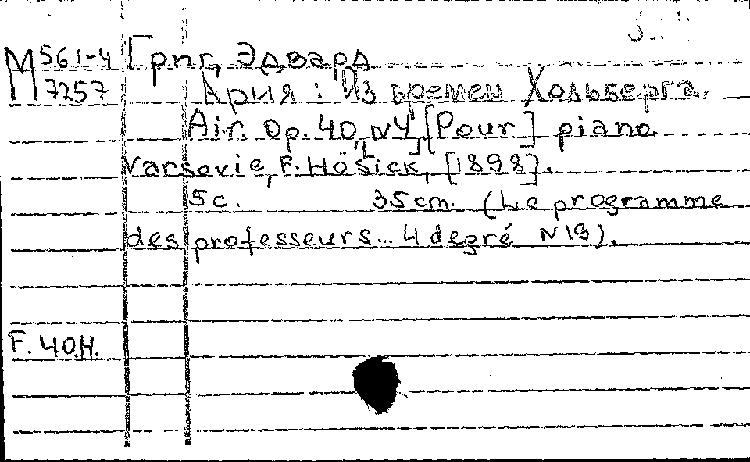 М 561-4 Григ, Эдвард
7257 Ария: Из времен Хольберга.
Air. Op. 40, N4, [Pour] piano
Varsovie, F. Hösick, [1898].
5с. 35cm. (Le programme
des professeurs... 4 degré N13).
F. 40H.